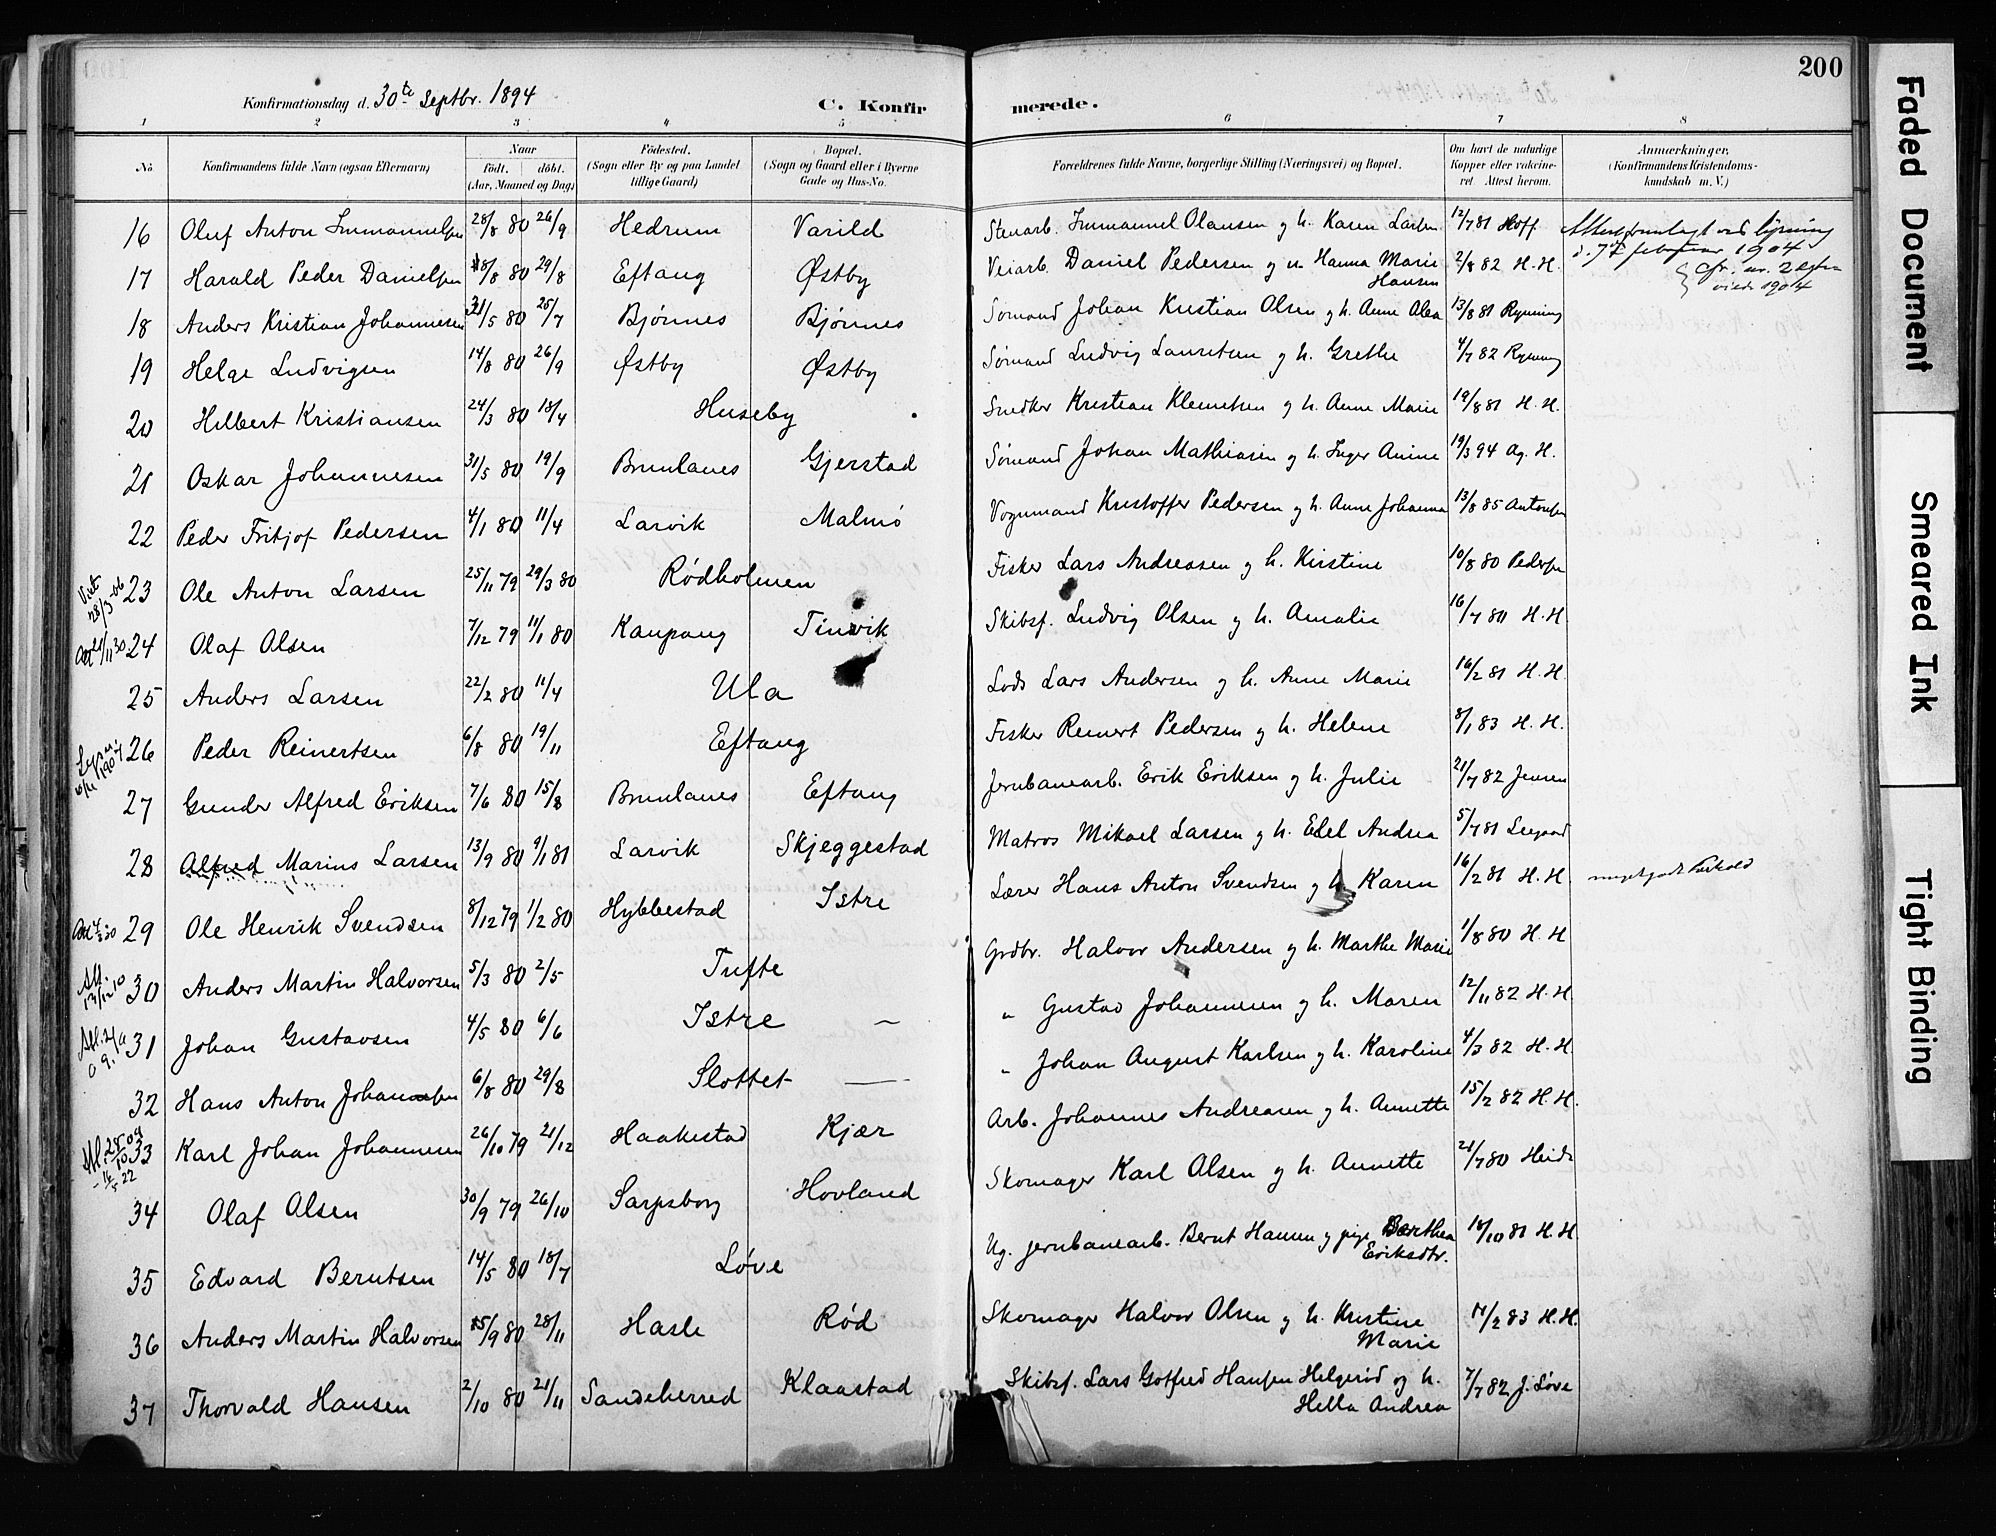 200
Konfirmationsdag d. 30te Septbr. 1894
C. Konfirmerede.
1 2 3 4 5 6 7 8
No. Konfirmandens fulde Navn (ogsaa Efternavn) Naar født. døbt. (Aar, Maaned og Dag) Fødested. (Sogn eller By og paa Landet tillige Gaard) Bopæl. (Sogn og Gaard eller i Byerne Gade og Hus-No. Forældrenes fulde Navne, borgerlige Stilling (Næringsvei) og Bopæl. Om havt de naturlige Kopper eller vakcineret Attest herom. Anmærkninger. (Konfirmandens Kristendomskundskab m. V.)
16 Oluf Anton Immanuelsen 28/8 80 26/9 Hedrum Varild Stenarb. Immanuel Olausen g h. Karen Larsen 12/7 81 Hoff Attest fremlagt ved lysning
17 Harald Peder Danielsen 18/8 80 29/8 Eftang Østby Veiarb. Daniel Pedersen g h. Hanna Marie Hansen 2/8 82 H. H. 1904
18 Anders Kristian Johannesen 31/5 80 25/7 Bjønnes Bjønnes Sømand Johan Kristian Olsen g h. Anne Olea 13/8 81 Rynning
19 Helge Ludvigsen 14/8 80 26/9 Østby Østby Sømand Ludvig Lauritsen g h. Grethe 4/7 82 Rynning
20 Hilbert Kristiansen 24/3 80 18/4 Huseby Snedker Kristian Klemetsen g h. Anne Marie 19/8 81 H. H.
21 Oskar Johannesen 31/5 80 19/9 Brunlanes Gjerstad Sømand Johan Mathiasen g h. Inger Anine 19/3 94 Ag. H.
22 Peder Fritjof Pedersen 4/1 80 11/4 Larvik Malmø Vognmand Kristoffer Pedersen g h. Anne Johanna 13/8 85 Antonsen
Viet 28/3-06 23 Ole Anton Larsen 25/11 79 29/3 80 Rødholmen Fisker Lars Andreasen g h. Kirstine 10/8 80 Pedersen
24 Olaf Olsen 7/12 79 11/1 80 Kaupang Tinvik Skibsf. Ludvig Olsen g h. Amalie 16/7 80 H. H
25 Anders Larsen 22/2 80 11/4 Ula Lods Lars Andersen g h. Anne Marie 16/2 81 H. H.
26 Peder Reinertsen 6/8 80 19/11 Eftang Fisker Reinert Pedersen g h. Helene 8/1 83 H. H.
27 Gunder Alfred Eriksen 7/6 80 15/8 Brunlanes Eftang Jernbanearb. Erik Eriksen g h. Julie 21/7 82 Jensen
28 Alfred Marius Larsen 13/9 80 9/1 81 Larvik Skjeggestad Matros Mikael Larsen g h. Edel Andrea 5/7 81
29 Ole Henrik Svendsen 8/12 79 1/2 80 Hybbestad Istre Lærer Hans Anton Svendsen g h. Karen 16/2 81 H. H.
30 Anders Martin Halvorsen 5/3 80 2/5 Tufte Grdbr. Halvor Andersen g h. Marthe Marie 1/8 80 H. H
31 Johan Gustavsen 4/5 80 6/6 Istre — " Gustav Johannesen g h. Maren 12/11 82 H. H.
32 Hans Anton Johansen 6/8 80 29/8 Slottet — " Johan August Karlsen g h. Karoline 4/3 82 H. H.
33 Karl Johan Johannesen 26/10 79 21/12 Haakestad Kjær Arb. Johannes Andreasen g h. Annette 15/2 82 H. H.
34 Olaf Olsen 30/9 79 26/10 Sarpsborg Hovland Skomager Karl Olsen g h. Annette 21/7 80 Heide
35 Edvard Berntsen 14/5 80 18/7 Løve Ug. jernbanearb. Bernt Hansen g pige Berthea Eriksdtr. 18/10 81 H. H.
36 Anders Martin Halvorsen 15/9 80 28/11 Hasle Rød Skomager Halvor Olsen g h. Kristine Marie 17/2 83 H. H.
37 Thorvald Hansen 2/10 80 21/11 Sandeherred Klaastad Skibsf. Lars Gotfred Hansen Helgerød og h. Hella Andrea 7/7 82 J. Løve
Faded Document
Smeared Ink
Tight Binding